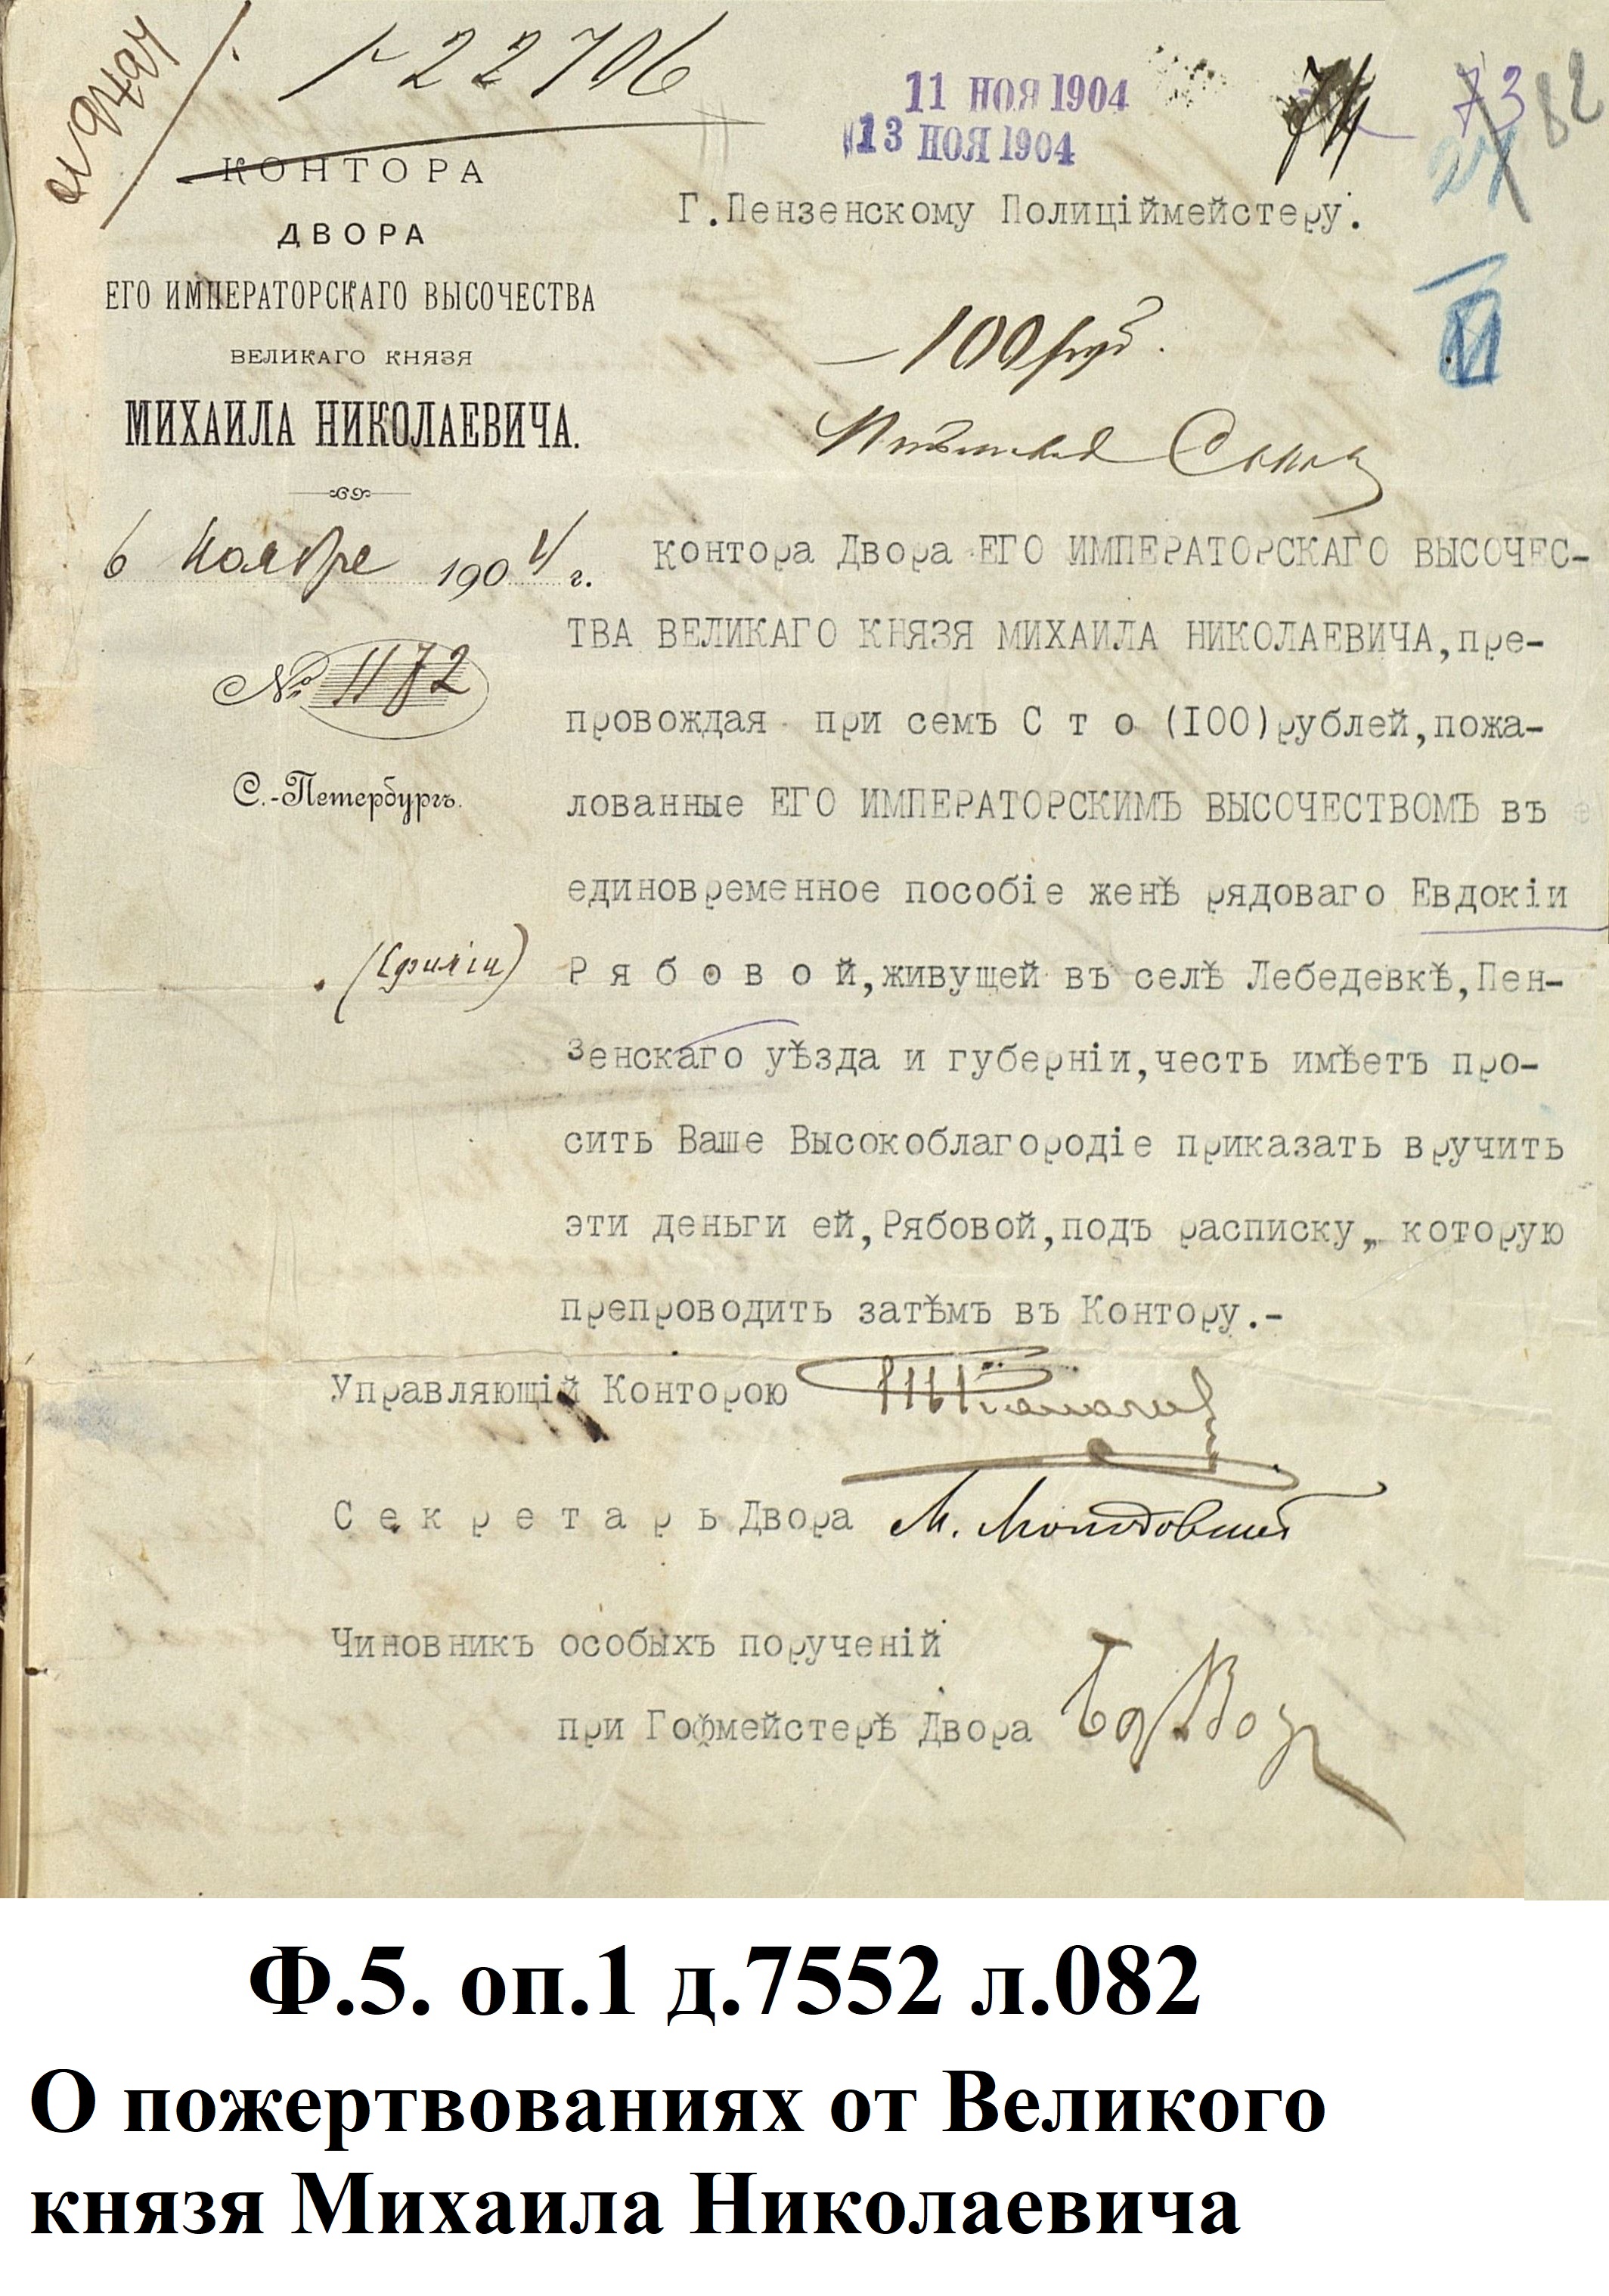 22706
11 НОЯ 1904
13 НОЯ 1904
73
82
КОНТОРА
ДВОРА
ЕГО ИМПЕРАТОРСКАГО ВЫСОЧЕСТВА
ВЕЛИКАГО КНЯЗЯ
МИХАИЛА НИКОЛАЕВИЧА.
6 Ноября 1904 г.
№ 1172
С.-Петербургъ.
Г.Пензенскому Полиціймейстеру.
100 руб.
контора Двора ЕГО ИМПЕРАТОРСКАГО ВЫСОЧЕС-
ТВА ВЕЛИКАГО КНЯЗЯ МИХАИЛА НИКОЛАЕВИЧА,пре-
провождая при семъ С т о (I00)рублей,пожа-
лованные ЕГО ИМПЕРАТОРСКИМЪ ВЫСОЧЕСТВОМЪ въ
единовременное пособіе женѣ рядоваго Евдокіи
Р я б о в о й,живущей въ селѣ Лебедевкѣ,Пен-
зенскаго уѣзда и губерніи,честь имѣетъ про-
сить Ваше Высокоблагородіе приказать вручить
эти деньги ей,Рябовой,подъ расписку, которую
препроводить затѣмъ въ Контору.-
Управляющій Конторою
С е к р е т а р ь Двора
Чиновникъ особыхъ порученій
при Гофмейстерѣ Двора
Ф.5. оп.1 д.7552 л.082
О пожертвованиях от Великого
князя Михаила Николаевича